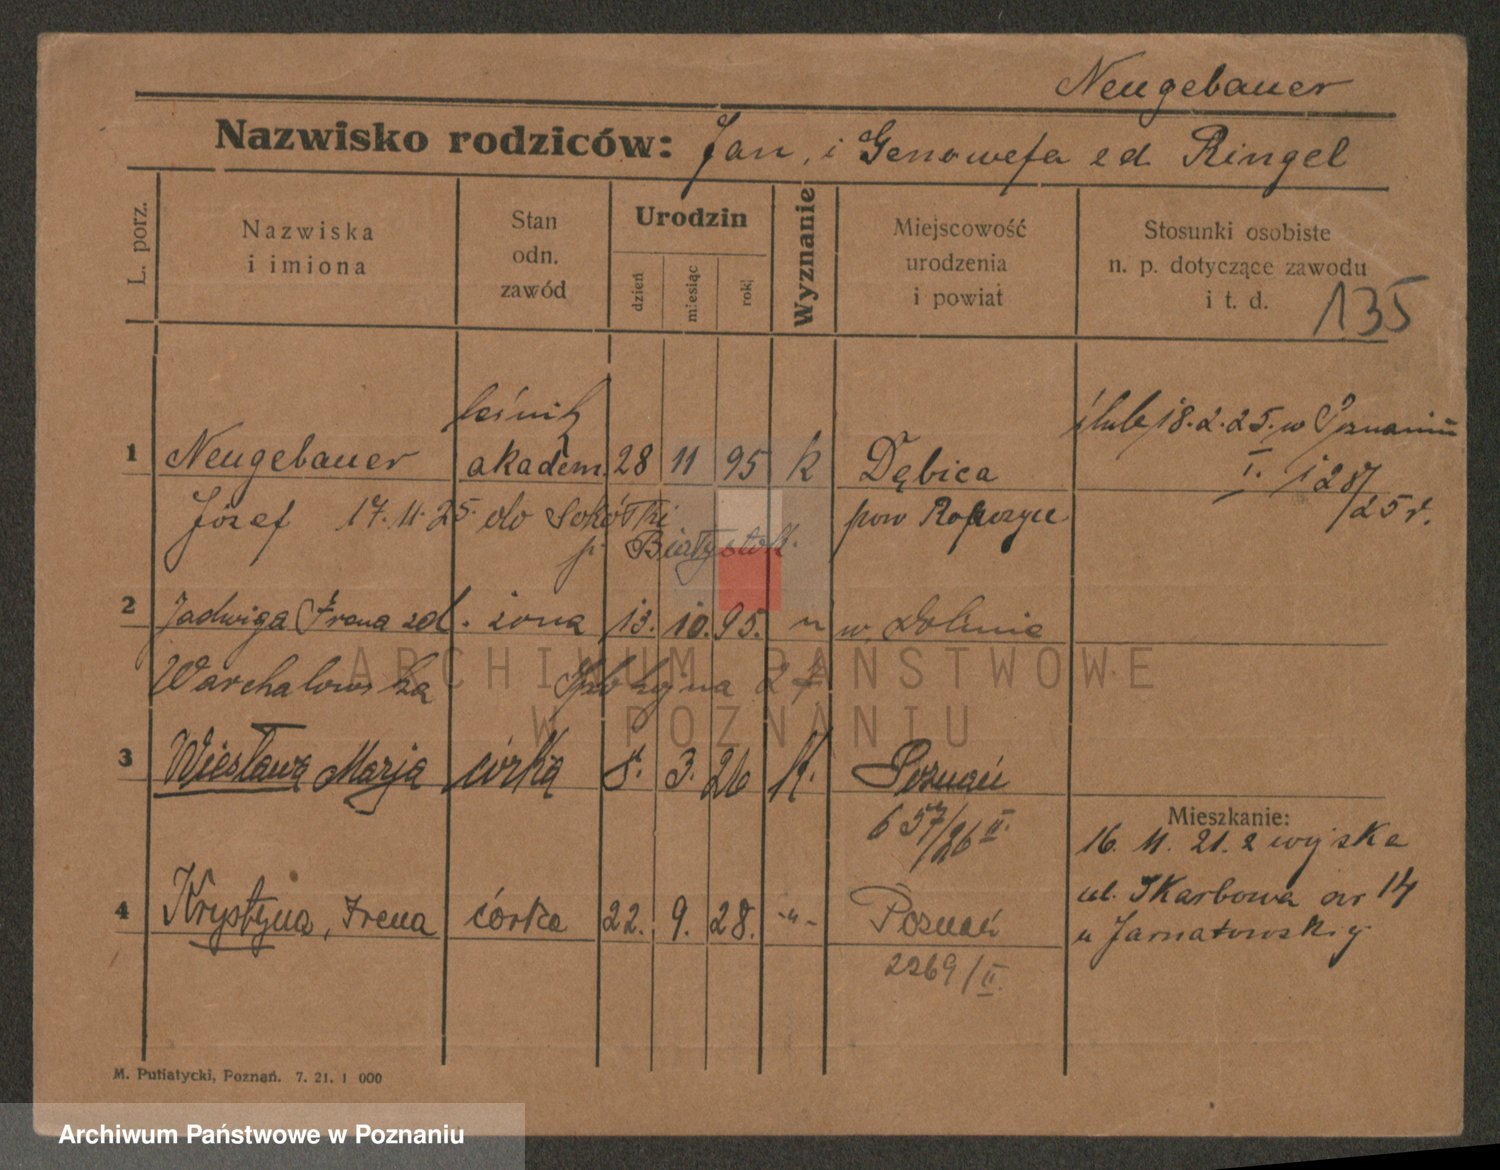 Neugebauer
Nazwisko rodziców: Jan, i Genowefa zd Ringel
L. porz.
Nazwiska
i imiona
Stan
odn.
zawód
Urodzin
dzień
miesiąc
rok
Wyznanie
Miejscowość
urodzenia
i powiat
Stosunki osobiste
n. p. dotyczące zawodu
i t. d.
135
leśnik
ślub 18.2.25. w Poznaniu
1 Neugebauer akadem. 28 11 95 k Dębica
I. 128/
25 r.
Józef 17.11.25. do Sokółki pow Ropczyce
p. Białystok.
2 Jadwiga Irena zd. żona 13. 10. 95. " w Dolinie
Warchałowska
3 Wiesława Marja córka 8. 3. 26 k. Poznań
657/26 II.
Mieszkanie:
16. 11. 21. z wojska
ul. Skarbowa nr 14
u Jarnatowskiej
4 Krystyna, Irena córka 22. 9. 28. -"- Poznań
2269/II.
M. Putiatycki, Poznań. 7. 21. 1 000
ARCHIWUM PAŃSTWOWE
W POZNANIU
Archiwum Państwowe w Poznaniu